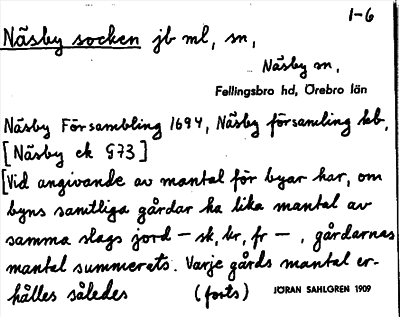 1-6
Näsby socken jb ml, sn,
Näsby sn,
Fellingsbro hd, Örebro län
Näsby Försambling 1694, Näsby församling kb,
[Näsby ek G73]
[Vid angivande av mantal för byar har, om
byns samtliga gårdar ha lika mantal av
samma slags jord – sk, kr, fr – , gårdarnas
mantal summerats. Varje gårds mantal er-
hålles således (forts) JÖRAN SAHLGREN 1909